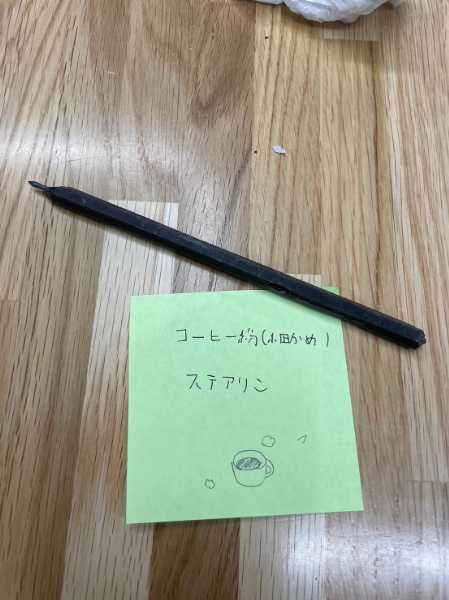 コーヒー粉(細かめ)
ステアリン